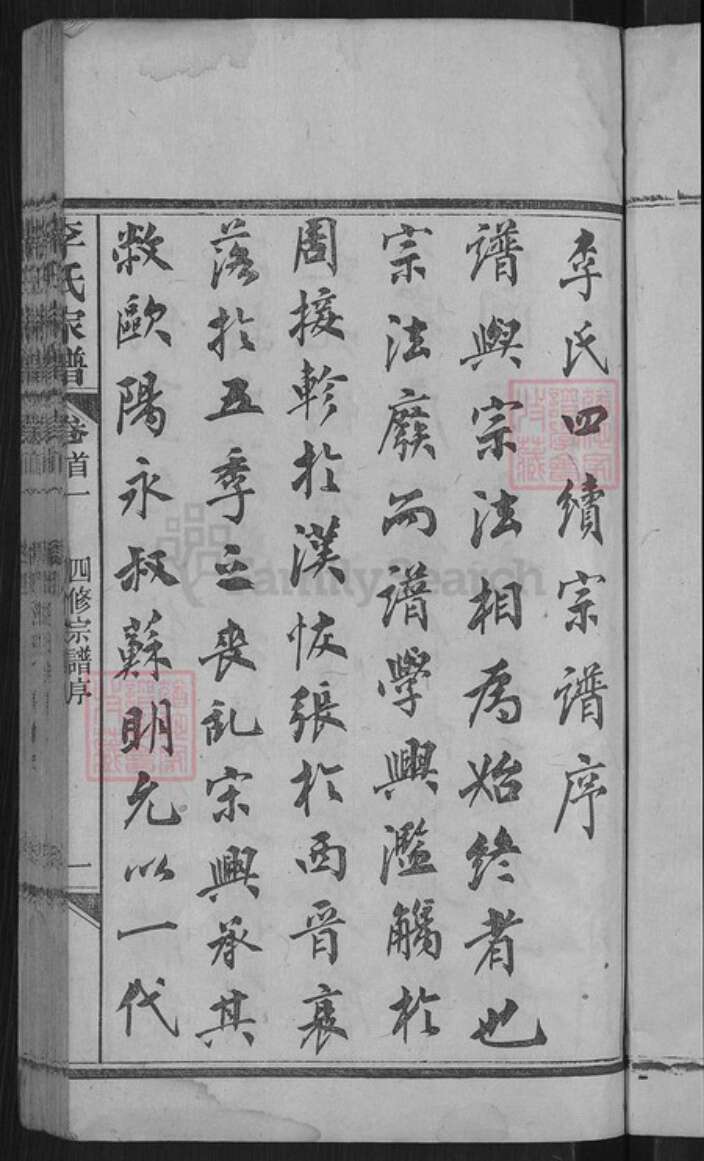 李氏四續宗譜序
譜與宗法相為始終者也
宗法廢而譜學興濫觴於
周接軫於漢恢張於西晉衰
落於五季之喪亂宋興承其
敝歐陽永叔蘇明允以一代
李氏家譜
卷首一
四修宗譜序
一
FamilySearch